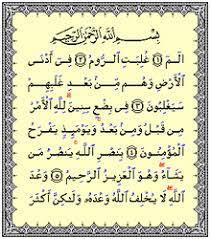 بِسْمِ اللَّهِ الرَّحْمَٰنِ الرَّحِيمِ
الٓمٓ ۝١ غُلِبَتِ الرُّومُ ۝٢ فِىٓ أَدْنَى
الْأَرْضِ وَهُم مِّنۢ بَعْدِ غَلَبِهِمْ
سَيَغْلِبُونَ ۝٣ فِى بِضْعِ سِنِينَ ۗ لِلَّهِ الْأَمْرُ
مِن قَبْلُ وَمِنۢ بَعْدُ ۚ وَيَوْمَئِذٍ يَفْرَحُ
الْمُؤْمِنُونَ ۝٤ بِنَصْرِ اللَّهِ ۚ يَنصُرُ مَن
يَشَآءُ ۖ وَهُوَ الْعَزِيزُ الرَّحِيمُ ۝٥ وَعْدَ
اللَّهِ ۖ لَا يُخْلِفُ اللَّهُ وَعْدَهُۥ وَلَٰكِنَّ أَكْثَرَ